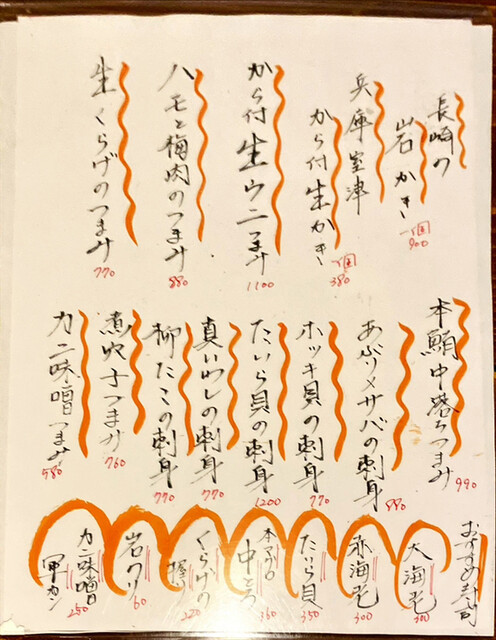 長崎の
岩かき
一個
900
兵庫室津
から付生かき
一個
380
から付生ウニつまみ
1100
ハモと梅肉のつまみ
880
生くらげのつまみ
770
本鮪中落ちつまみ
990
あぶりメサバの刺身
880
ホッキ貝の刺身
770
たいら貝の刺身
1200
真いわしの刺身
770
柳たこの刺身
770
煮穴子つまみ
760
カニ味噌つまみ
580
おすすめ寿司
大海老
300
赤海老
300
たいら貝
350
本マグロ
中とろ
360
くらげの
握り
220
岩のり
160
カニ味噌
軍カン
250